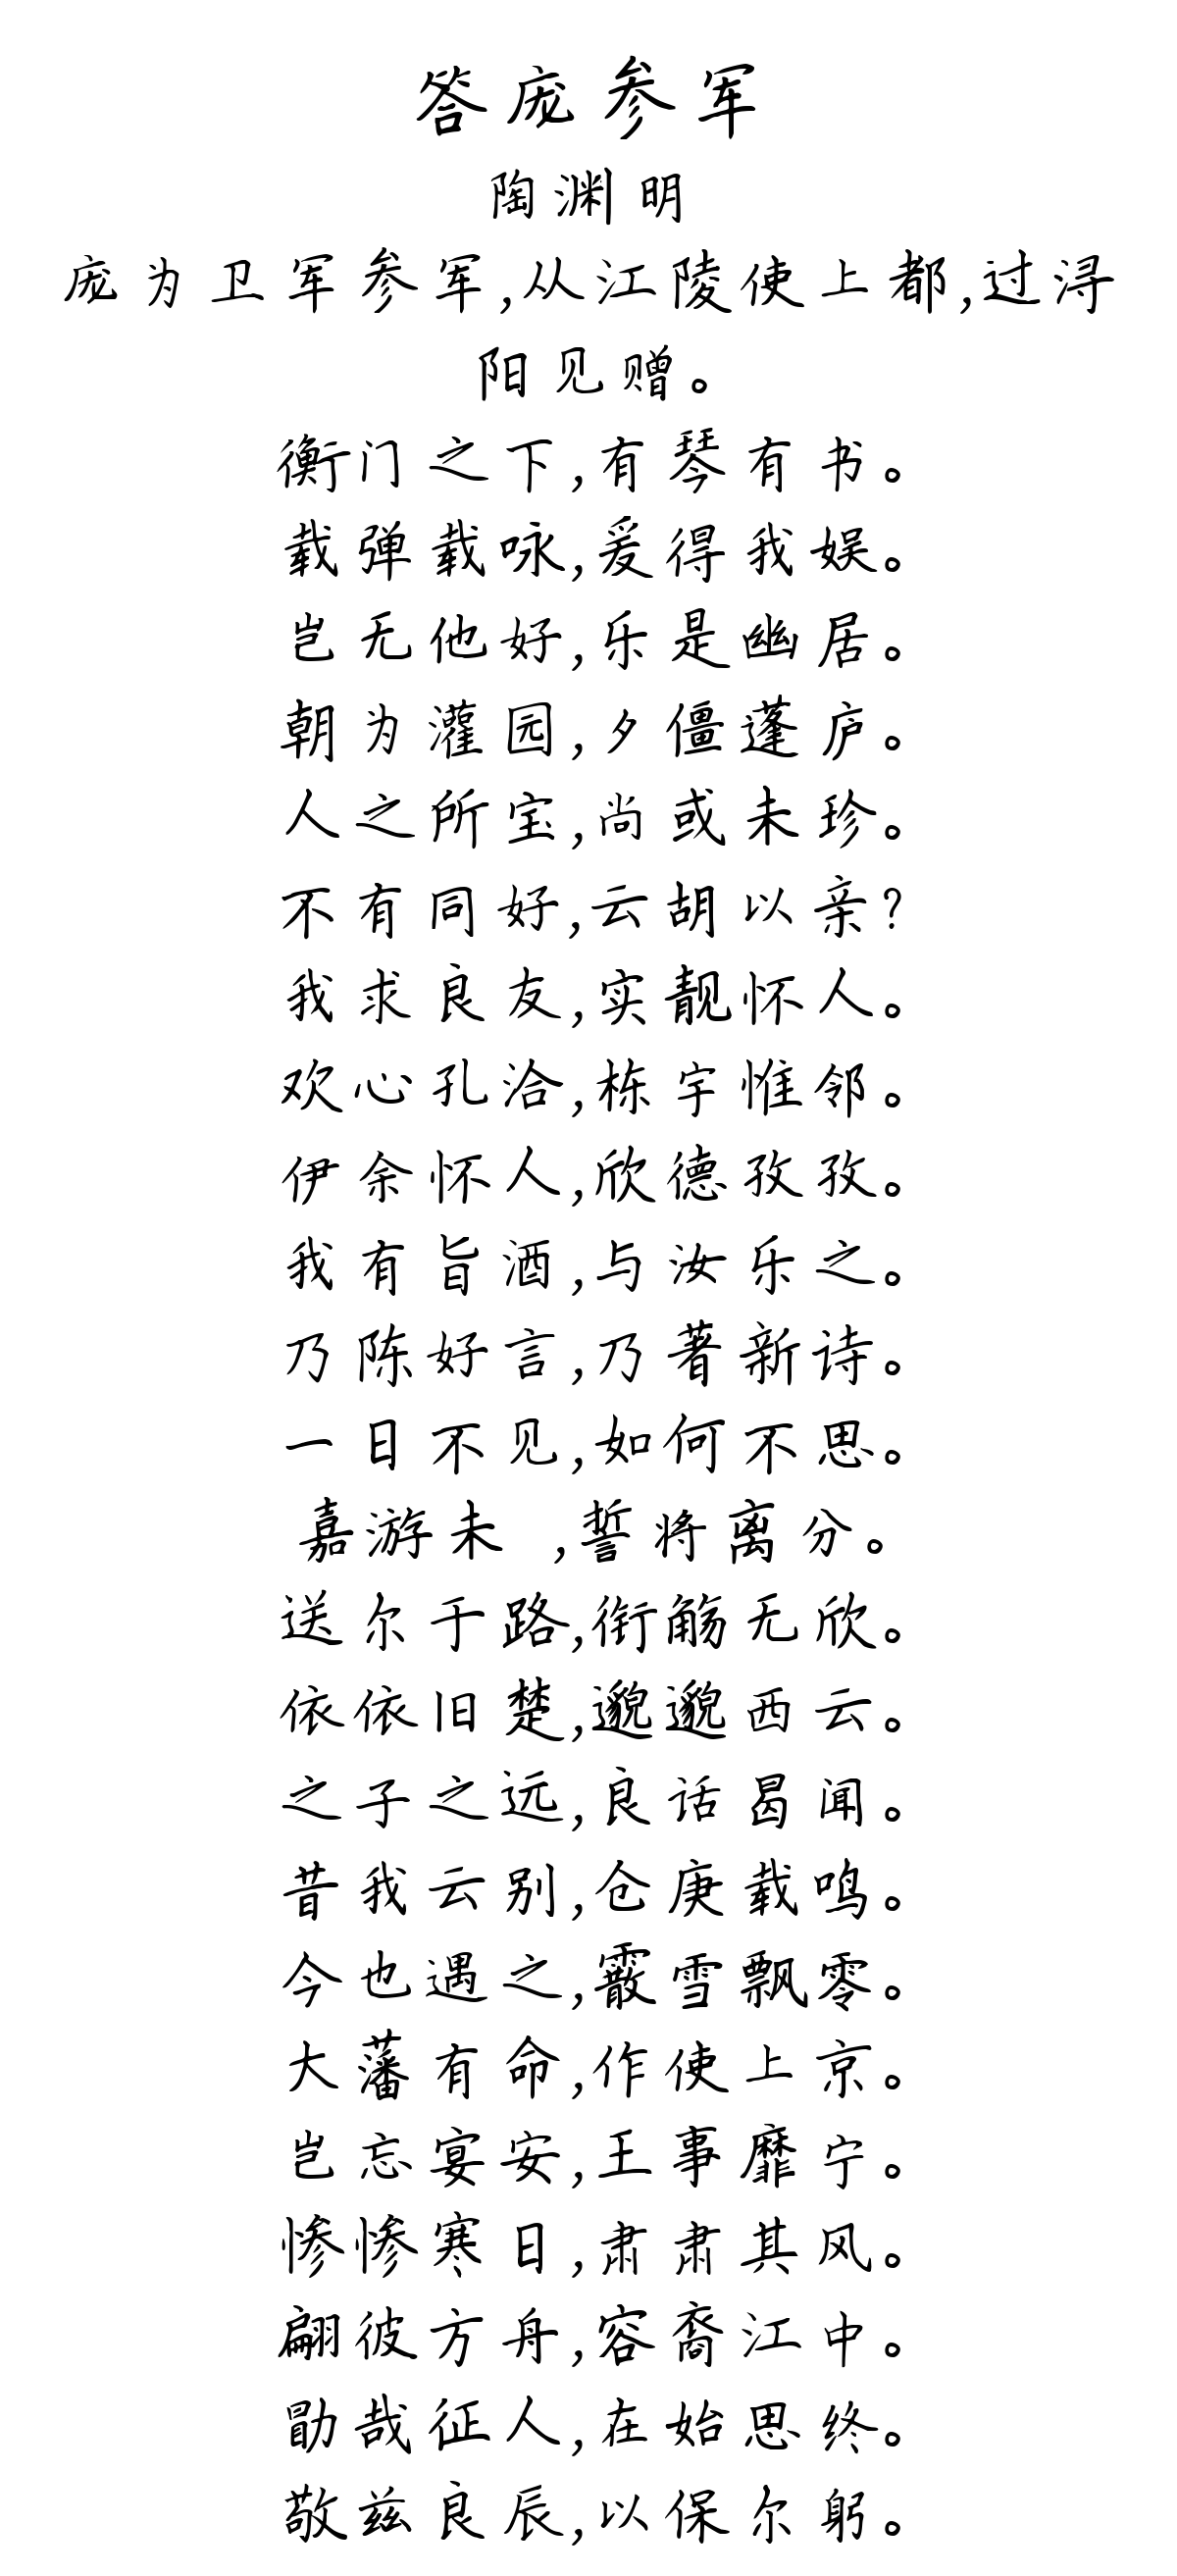 答庞参军
陶渊明
庞为卫军参军,从江陵使上都,过浔
阳见赠。
衡门之下,有琴有书。
载弹载咏,爰得我娱。
岂无他好,乐是幽居。
朝为灌园,夕僵蓬庐。
人之所宝,尚或未珍。
不有同好,云胡以亲?
我求良友,实靓怀人。
欢心孔洽,栋宇惟邻。
伊余怀人,欣德孜孜。
我有旨酒,与汝乐之。
乃陈好言,乃著新诗。
一日不见,如何不思。
嘉游未 ,誓将离分。
送尔于路,衔觞无欣。
依依旧楚,邈邈西云。
之子之远,良话曷闻。
昔我云别,仓庚载鸣。
今也遇之,霰雪飘零。
大藩有命,作使上京。
岂忘宴安,王事靡宁。
惨惨寒日,肃肃其风。
翩彼方舟,容裔江中。
勖哉征人,在始思终。
敬兹良辰,以保尔躬。